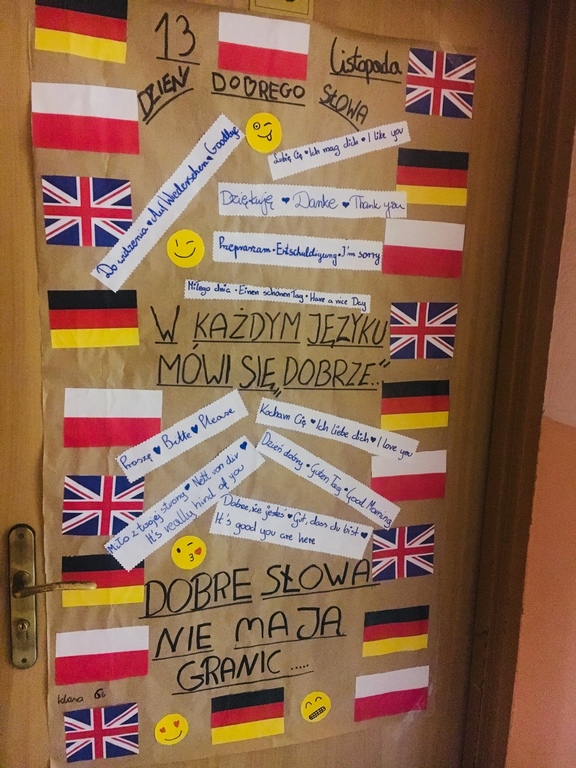 13 Listopada
DZIEŃ DOBREGO SŁOWA
Do widzenia ♥ Auf Wiedersehen ♥ Goodby
Lubię Cię • Ich mag dich • I like you
Dziękuję ♥ Danke ♥ Thank you
Przepraszam • Entschuldigung • I'm sorry
Miłego dnia • Einen schönen Tag • Have a nice Day
W KAŻDYM JĘZYKU
MÓWI SIĘ „DOBRZE..”
Proszę ♥ Bitte ♥ Please
Kocham Cię ♥ Ich liebe dich ♥ I love you
Dzień dobry • Guten Tag • Good Morning
Miło z twojej strony • Nett von dir ♥
It's really kind of you
Dobrze, że jesteś ♥ Gut, dass du bist ♥
It's good you are here
DOBRE SŁOWA
NIE MAJĄ
GRANIC.....
klasa